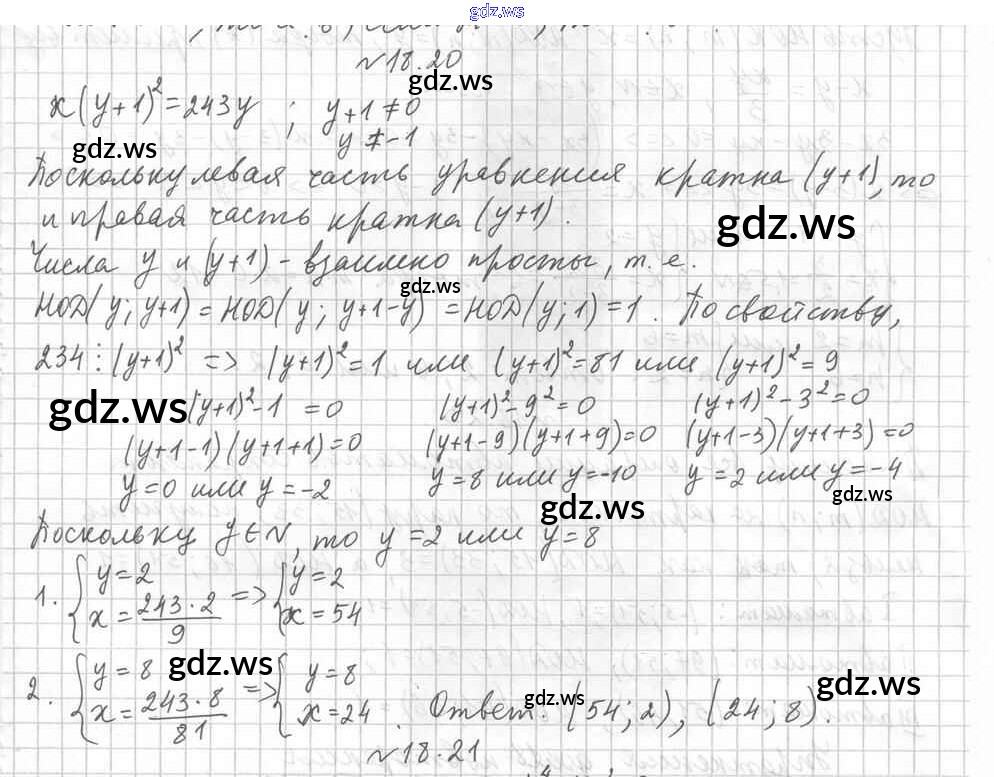 gdz.ws
№18.20
gdz.ws
x(y+1)²=243y ; y+1≠0
gdz.ws
y≠-1
Поскольку левая часть уравнения кратна (y+1), то
и правая часть кратна (y+1).
gdz.ws
Числа y и (y+1) - взаимно просты, т.е.
gdz.ws
НОД(y; y+1) = НОД(y; y+1-y) = НОД(y; 1) = 1. По свойству,
234⋮(y+1)² => (y+1)²=1 или (y+1)²=81 или (y+1)²=9
gdz.ws (y+1)²-1 =0 (y+1)²-9²=0 (y+1)²-3²=0
(y+1-1)(y+1+1)=0 (y+1-9)(y+1+9)=0 (y+1-3)(y+1+3)=0
y=0 или y=-2 y=8 или y=-10 y=2 или y=-4
gdz.ws gdz.ws
Поскольку y∈N, то y=2 или y=8
1. {y=2 => {y=2
x=243·2/9 x=54
2. {y=8 gdz.ws => {y=8 gdz.ws
x=243·8/81 x=24. Ответ: (54; 2), (24; 8).
gdz.ws
№18.21